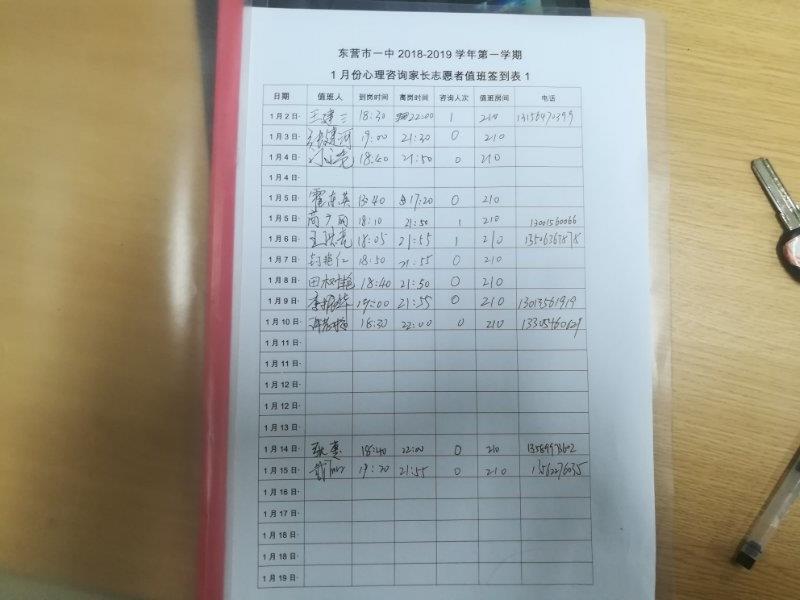 东营市一中 2018-2019 学年第一学期
1 月份心理咨询家长志愿者值班签到表 1
日期 值班人 到岗时间 离岗时间 咨询人次 值班房间 电话
1 月 2 日· 王建三 18:30 22:00 1 210 13156470399
1 月 3 日· 19:00 21:30 0 210
1 月 4 日· 18:40 21:50 0 210
1 月 4 日·
1 月 5 日· 霍东英 13:40 17:20 0 210
1 月 5 日· 18:10 21:50 1 210 13001560066
1 月 6 日· 18:05 21:55 1 210
1 月 7 日· 18:50 21:55 0 210
1 月 8 日· 18:40 21:50 0 210
1 月 9 日· 19:00 21:55 0 210 13013561919
1 月 10 日· 18:30 22:00 0 210
1 月 11 日·
1 月 11 日·
1 月 12 日·
1 月 12 日·
1 月 13 日·
1 月 14 日· 18:40 22:00 0 210
1 月 15 日· 19:20 21:55 0 210
1 月 16 日·
1 月 17 日·
1 月 18 日·
1 月 18 日·
1 月 19 日·